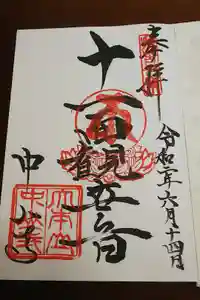 奉拝
令和二年六月十四日
十一面観世音
中山寺
大本山
中山寺